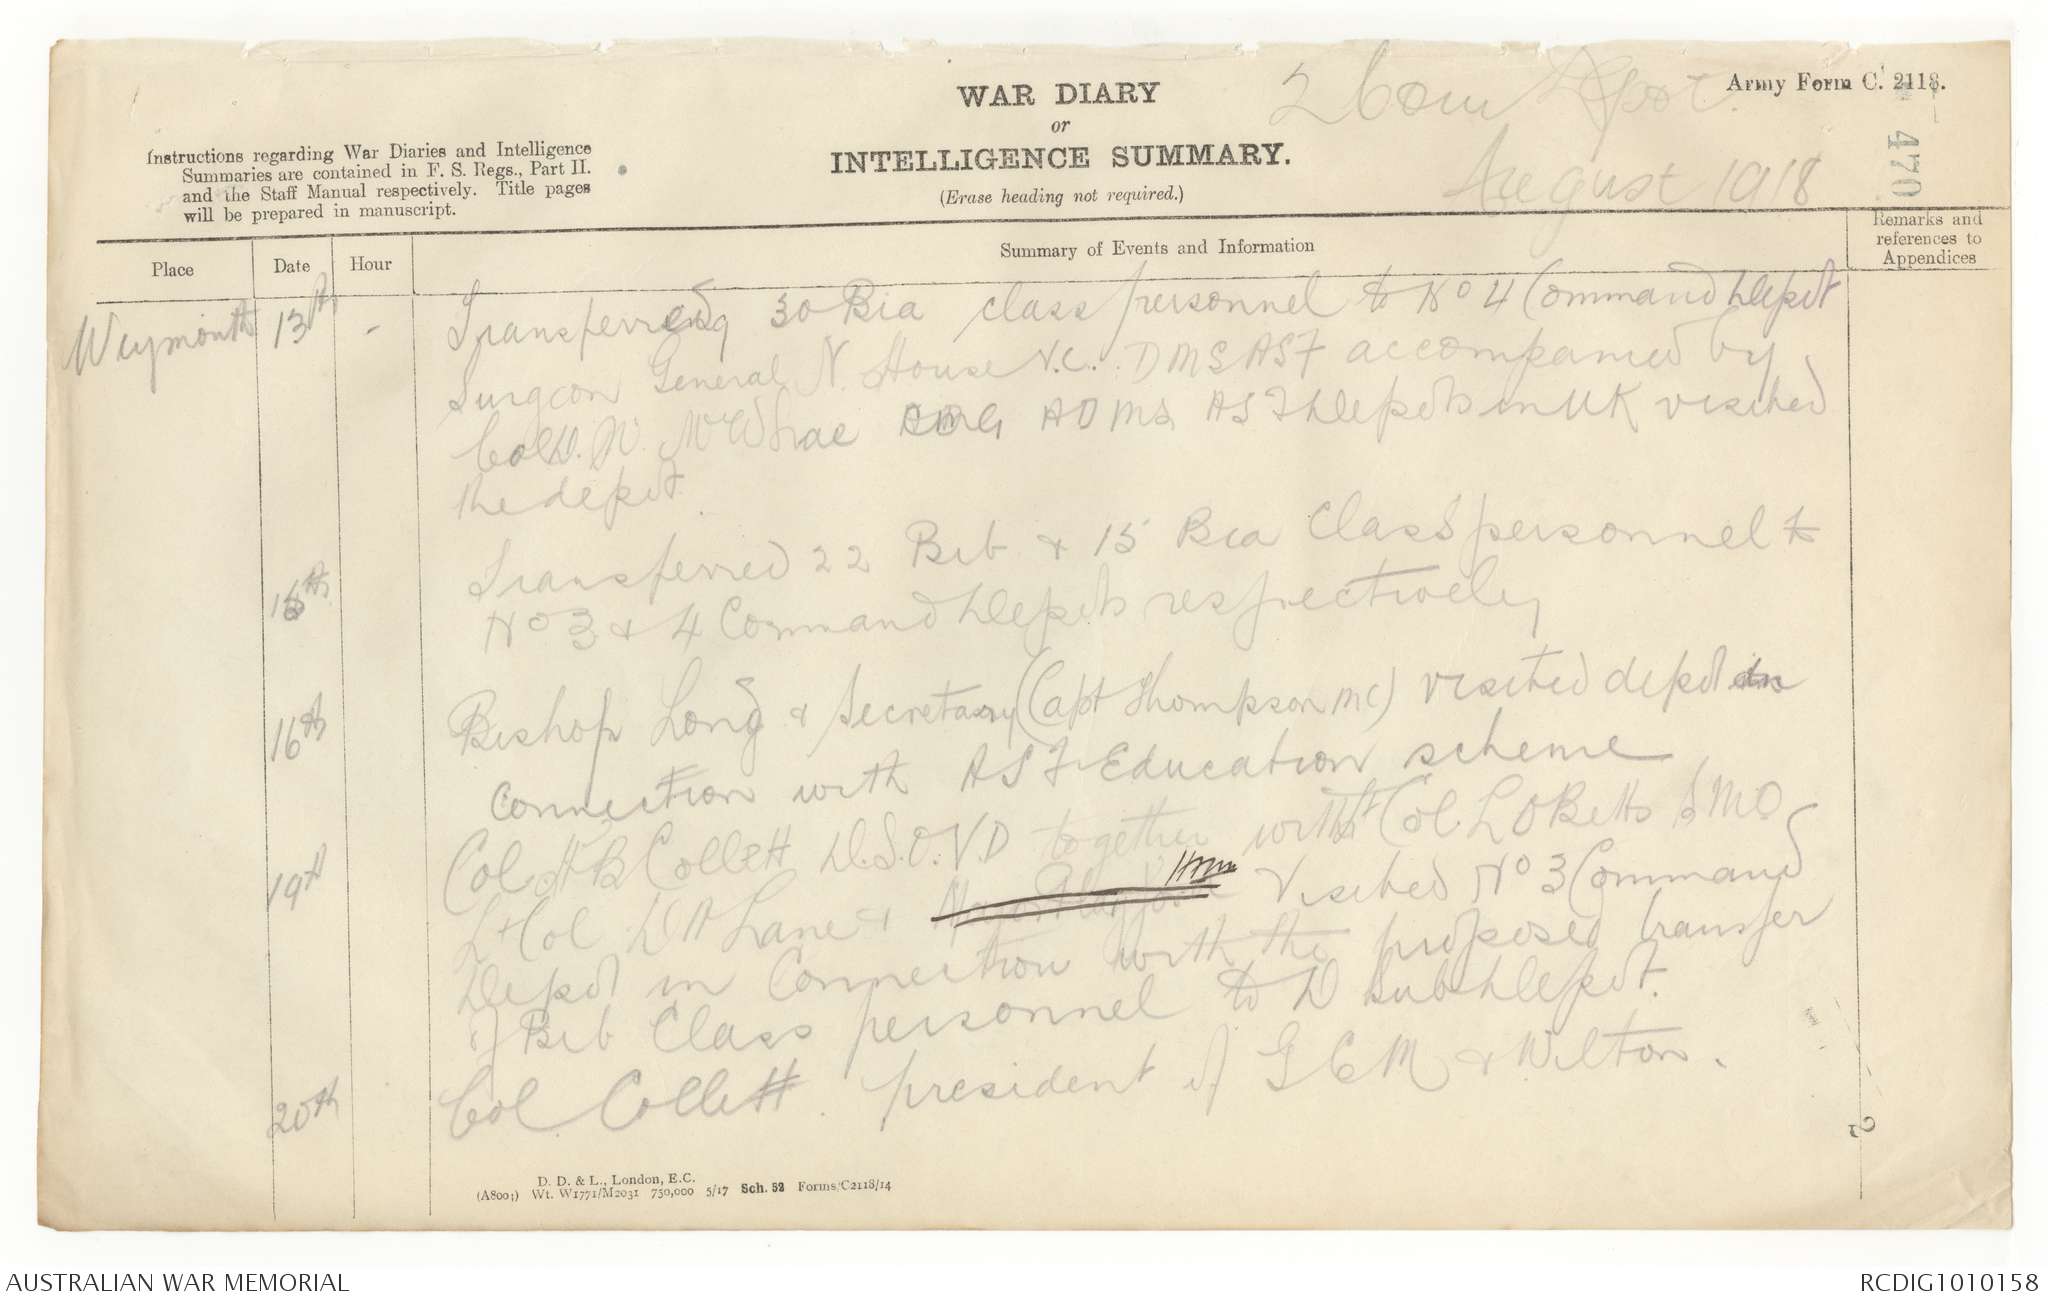 WAR DIARY
or
INTELLIGENCE SUMMARY.
(Erase heading not required.)
2 Com Depot.
August 1918
Army Form C. 2118.
470
Instructions regarding War Diaries and Intelligence
Summaries are contained in F. S. Regs., Part II.
and the Staff Manual respectively. Title pages
will be prepared in manuscript.
Place
Date
Hour
Summary of Events and Information
Remarks and
references to
Appendices
Weymouth 13th - Transferred 30 Bia class personnel to No 4 Command Depot
Surgeon General N. House V.C. DMS AIF accompanied by
Col D. W. McWhae CMG ADMS AIF Depots in UK visited
the depot.
15th Transferred 22 Bib & 15 Bia Class personnel to
No 3 & 4 Command Depots respectively
16th Bishop Long & Secretary (Capt Thompson MC) visited depot in
connection with AIF Education scheme
19th Col H B Collett D.S.O. V.D together with Lt Col L O Betts SMO
Lt Col D A Lane & Visited No 3 Command
Depot in Connection with the proposed transfer
of Bib Class personnel to D Sub Depot.
20th Col Collett president of G C M & Wilton.
2
D. D. & L., London, E.C.
(A8003) Wt. W1771/M2031 750,000 5/17 Sch. 52 Forms/C2118/14
AUSTRALIAN WAR MEMORIAL
RCDIG1010158